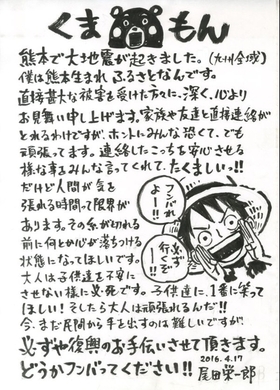 くまもん
熊本で大地震が起きました。(九州全域)
僕は熊本生まれ ふるさとなんです。
直接甚大な被害を受けた方々に、深く、心より
お見舞い申し上げます。家族や友達と直接連絡が
とれるわけですが、ホントにみんな恐くて、でも
頑張ってます。連絡したこっちを安心させる
様な事もみんな言ってくれて、たくましいっ!!
だけど人間が気を
張れる時間って限界が
あります。その糸が切れる
前に何とか心が落ちつける
状態になってほしいです。
大人は子供達を不安に
させない様に必死です。子供達に、1番に笑って
ほしい!そしたら大人は頑張れるんだ!!
今、まだ民間から手を出すのは難しいですが、
必ずや復興のお手伝いさせて頂きます。
どうかフンバってください!!
フンバれよー!!
必ず行くぞー!!
2016.4.17
尾田栄一郎